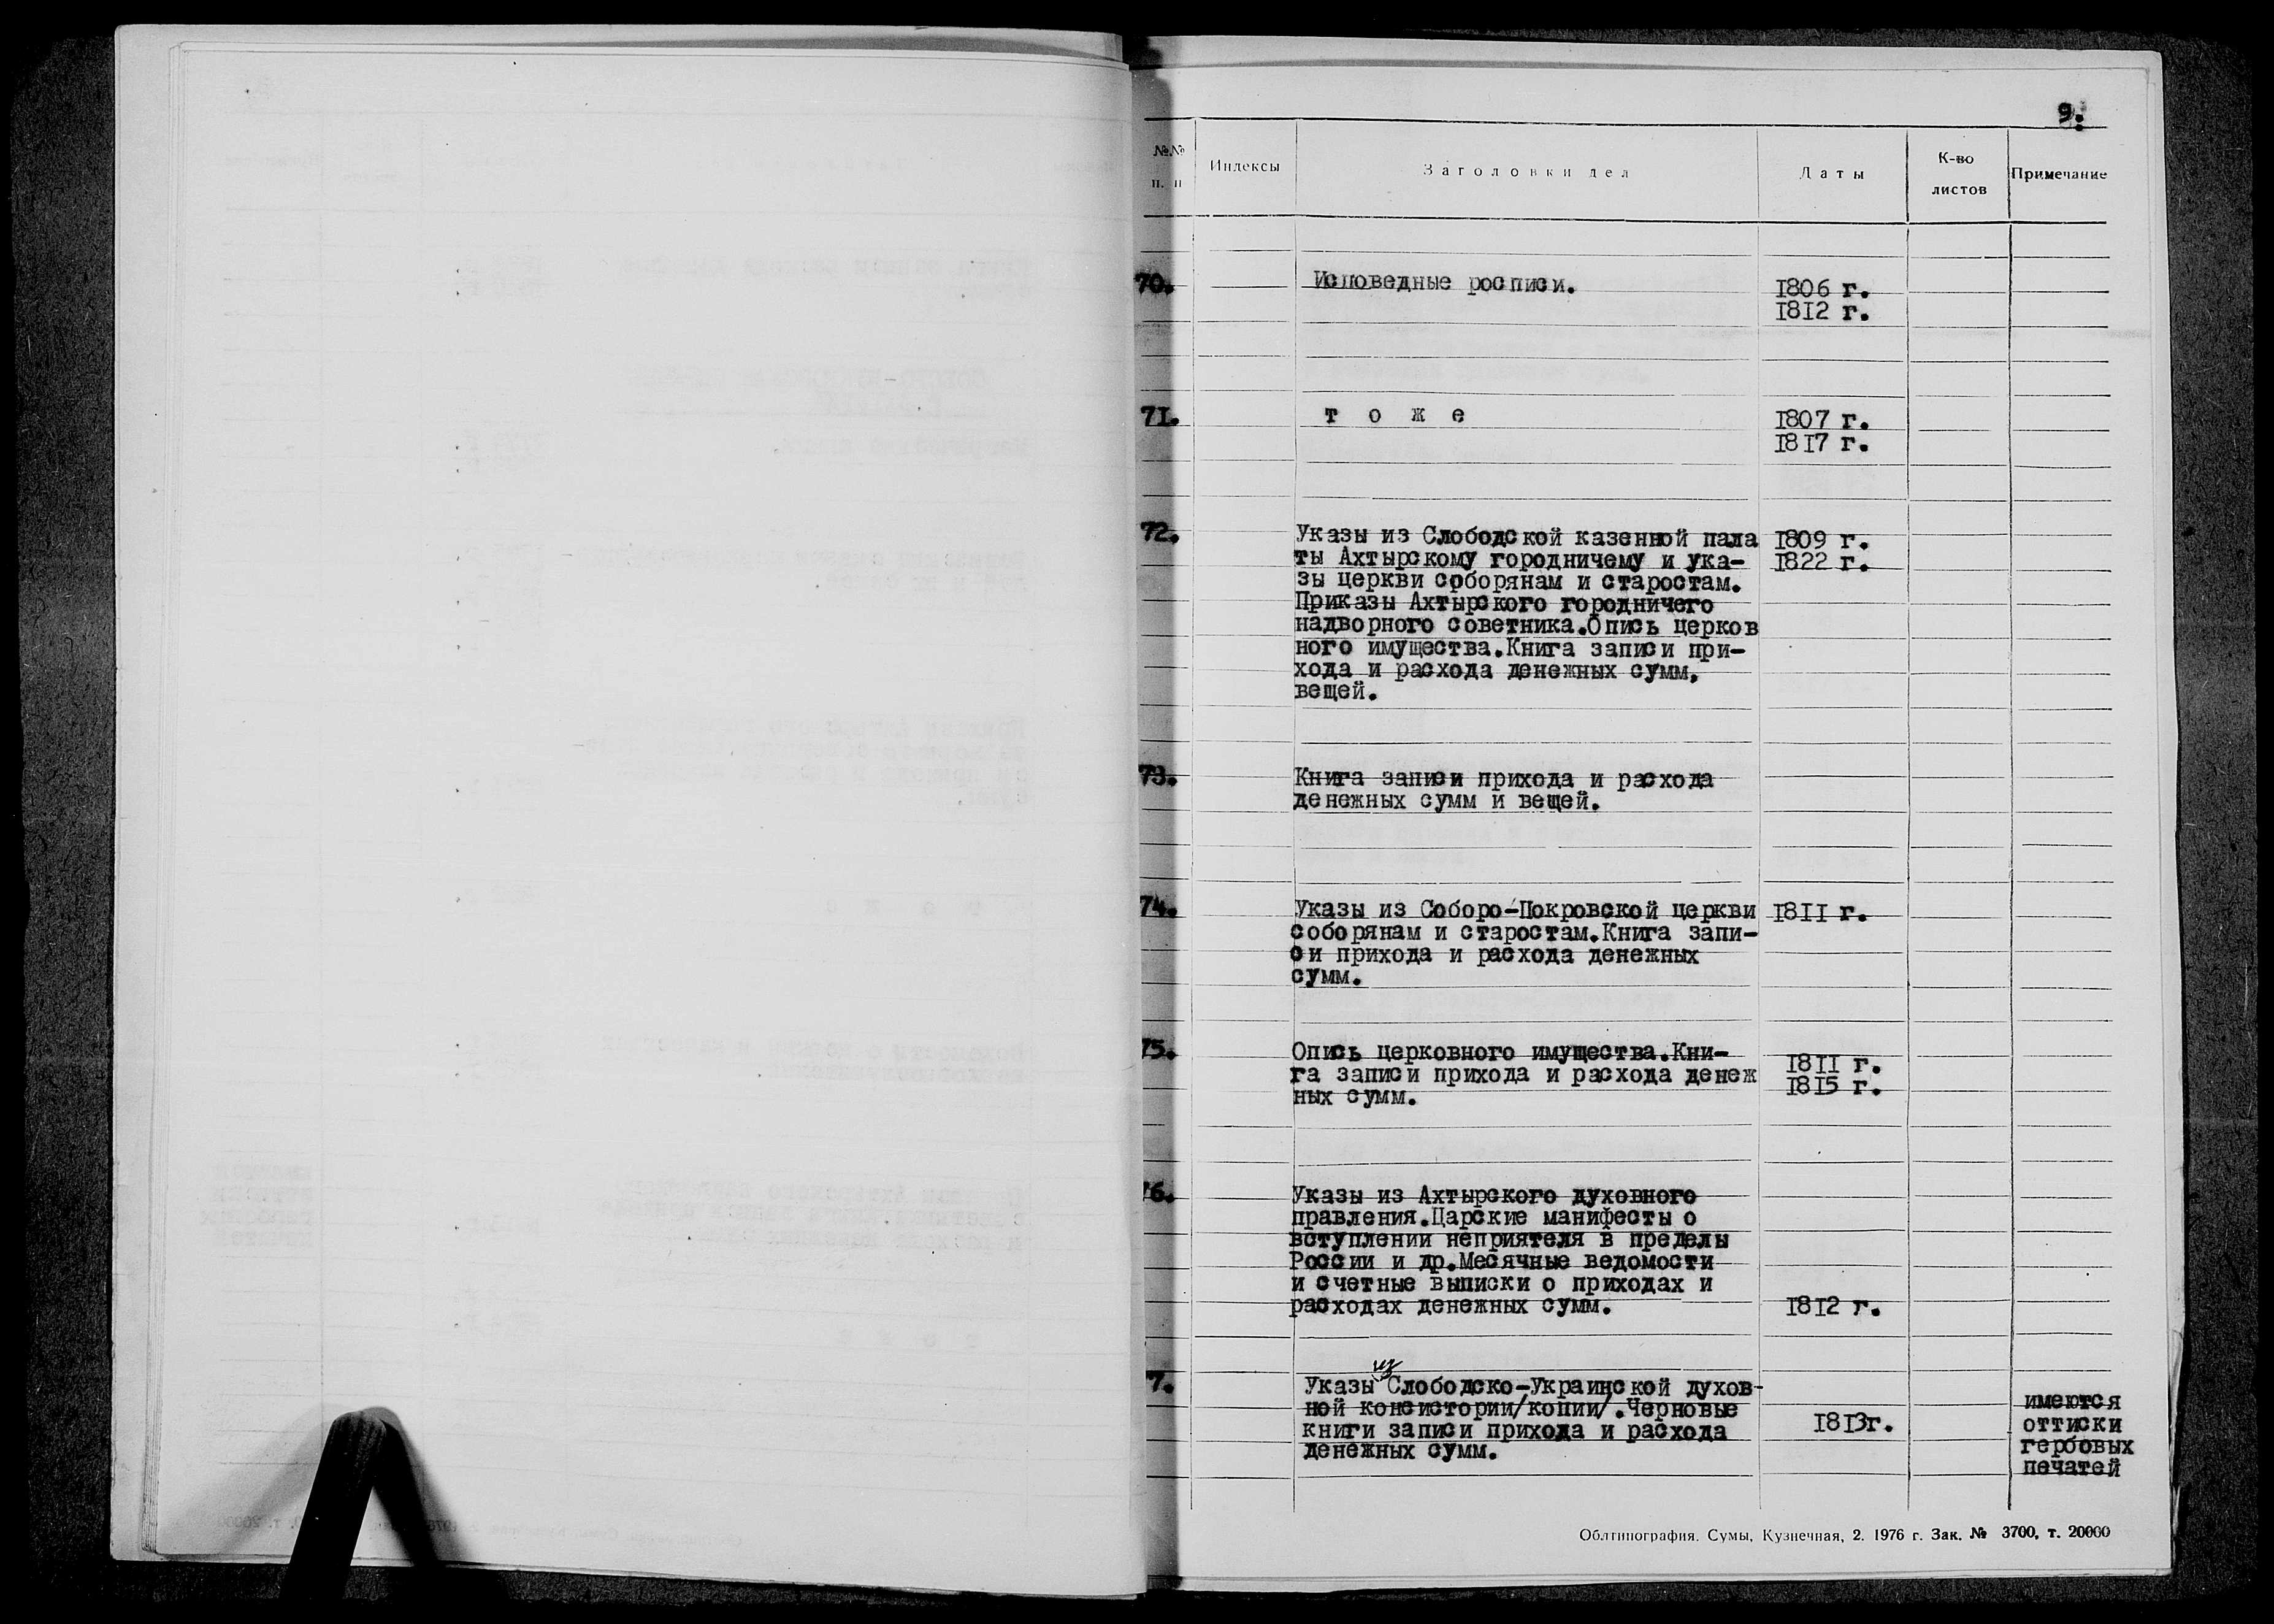 9.
№№ п. п Индексы Заголовки дел Даты К-во листов Примечание
70. Исповедные росписи. 1806 г.
1812 г.
71. т о ж е 1807 г.
1817 г.
72. Указы из Слободской казенной пала 1809 г.
ты Ахтырскому городничему и ука- 1822 г.
зы церкви соборянам и старостам.
Приказы Ахтырского городничего
надворного советника.Опись церков
ного имущества.Книга записи при-
хода и расхода денежных сумм,
вещей.
73. Книга записи прихода и расхода
денежных сумм и вещей.
74. Указы из Соборо-Покровской церкви 1811 г.
соборянам и старостам.Книга запи-
си прихода и расхода денежных
сумм.
75. Опись церковного имущества.Кни- 1811 г.
га записи прихода и расхода денеж 1815 г.
ных сумм.
76. Указы из Ахтырского духовного
правления.Царские манифесты о
вступлении неприятеля в пределы
России и др.Месячные ведомости
и счетные выписки о приходах и
расходах денежных сумм. 1812 г.
77. Указы из Слободско-Украинской духов-
ной консистории/копии/.Черновые имеются
книги записи прихода и расхода 1813г. оттиски
денежных сумм. гербовых
печатей
Облтипография. Сумы, Кузнечная, 2. 1976 г. Зак. № 3700, т. 20000